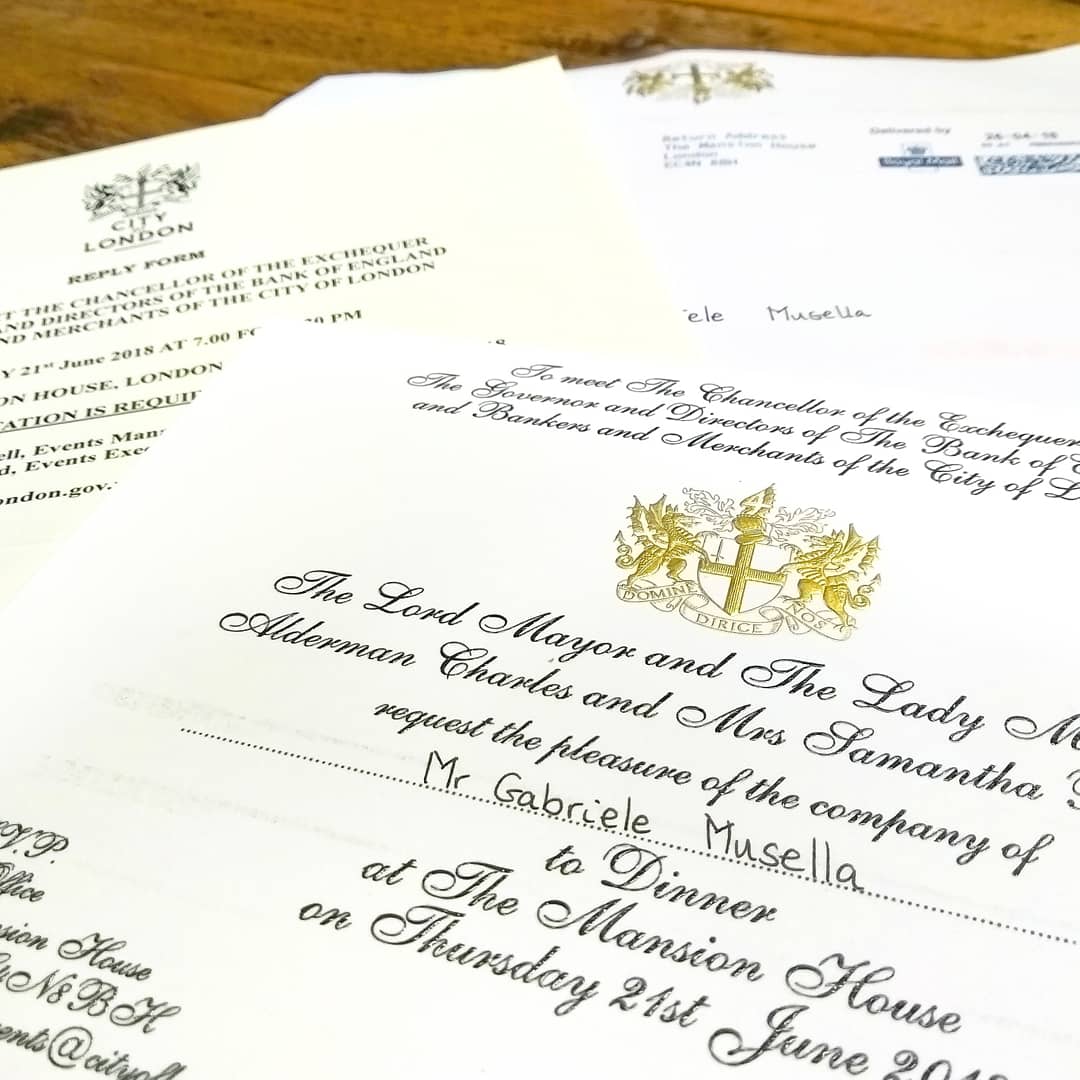 CITY
LONDON
REPLY FORM
T THE CHANCELLOR OF THE EXCHEQUER
ND DIRECTORS OF THE BANK OF ENGLAND
ND MERCHANTS OF THE CITY OF LONDON
Y 21st June 2018 AT 7.00 PM
ON HOUSE, LONDON
ATION IS REQUI
ell, Events Man
d, Events Exe
ondon.gov.
Return Address
The Mansion House
London
EC4N 8BH
Delivered by
Royal Mail
ele Musella
To meet The Chancellor of the Exchequer
The Governor and Directors of The Bank of E
and Bankers and Merchants of the City of L
DOMINE DIRIGE NOS
The Lord Mayor and The Lady M
Alderman Charles and Mrs Samantha
request the pleasure of the company of
Mr Gabriele Musella
to Dinner
at The Mansion House
on Thursday 21st June 2018
V.P.
ffice
sion House
4N8BH
ents@cityofl